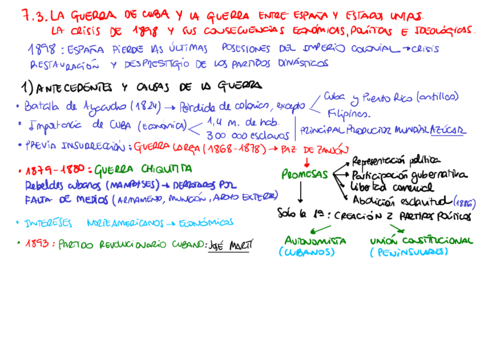 7.3. LA GUERRA DE CUBA Y LA GUERRA ENTRE ESPAÑA Y ESTADOS UNIDOS.
LA CRISIS DE 1898 Y SUS CONSECUENCIAS ECONÓMICAS, POLÍTICAS E IDEOLÓGICAS.
1898: ESPAÑA PIERDE LAS ÚLTIMAS POSESIONES DEL IMPERIO COLONIAL → CRISIS
RESTAURACIÓN Y DESPRESTIGIO DE LOS PARTIDOS DINÁSTICOS
1) ANTECEDENTES Y CAUSAS DE LA GUERRA
• Batalla de Ayacucho (1824) → Pérdida de colonias, excepto
Cuba y Puerto Rico (antillas)
Filipinas.
• Importancia de CUBA (económica)
1,4 m. de hab.
300 000 esclavos
PRINCIPAL PRODUCTOR MUNDIAL AZÚCAR
• PREVIA INSURRECCIÓN: GUERRA LARGA (1868-1878) → PAZ DE ZANJÓN
• 1879-1880: GUERRA CHIQUITA
Rebeldes cubanos (MAMBISES) → DERROTADOS POR
FALTA DE MEDIOS (ARMAMENTO, MUNICIÓN, APOYO EXTERIOR)
PROMESAS
Representación política
Participación gubernativa
Libertad comercial
Abolición esclavitud (1886)
Sólo la 1ª: CREACIÓN 2 PARTIDOS POLÍTICOS
• INTERESES NORTEAMERICANOS → ECONÓMICOS
• 1893: PARTIDO REVOLUCIONARIO CUBANO: JOSÉ MARTÍ
AUTONOMISTA
(CUBANOS)
UNIÓN CONSTITUCIONAL
(PENINSULARES)